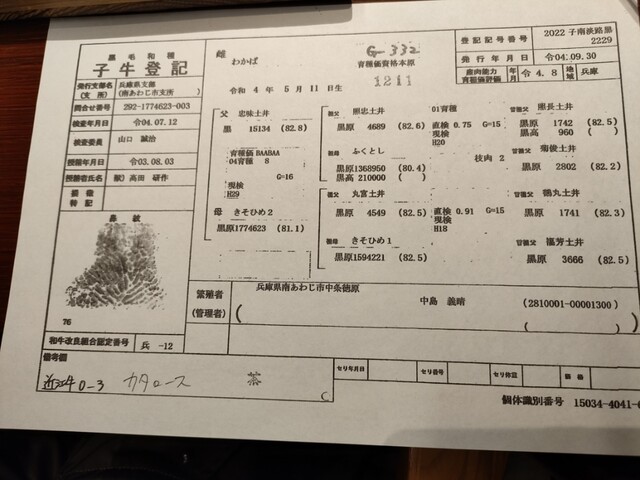 黒毛和種
子牛登記
雌
わかば
G-332
育種価資格本原
1211
令和 4 年 5 月 11 日生
登記記号番号
2022 子南淡路黒
2229
発行年月日
令04.09.30
産肉能力
育種価評価
年月
令4.8
地域
兵庫
発行支部名
(支 所)
兵庫県支部
(南あわじ市支所)
問合せ番号
292-1774623-003
検査年月日
令04.07.12
検査委員
山口 誠治
授精年月日
令03.08.03
授精者氏名
獣) 高田 研作
損徴
特記
鼻紋
76
和牛改良組合認定番号
兵 -12
父 忠味土井
黒 15134 (82.8)
育種価 BAABAA
04育種 8
G=16
現検
H29
母 きそひめ2
黒原1774623 (81.1)
祖父 照忠土井
黒原 4689 (82.6)
祖母 ふくとし
黒原1368950 (80.4)
黒高 210000 ( )
祖父 丸宮土井
黒原 4549 (82.5)
祖母 きそひめ1
黒原1594221 (82.5)
01育種
直検 0.75 G=15
現検
H20
枝肉 2
直検 0.91 G=15
現検
H18
曾祖父 照長土井
黒原 1742 (82.5)
黒高 960 ( )
曾祖父 菊俊土井
黒原 2802 (82.2)
曾祖父 鶴丸土井
黒原 1741 (82.3)
曾祖父 福芳土井
黒原 3666 (82.5)
繁殖者
(管理者)
兵庫県南あわじ市中条徳原
中島 義晴
(2810001-00001300)
( )
備考欄
近江牛 0-3 カタロース
C
セリ年月日
セリ番号
セリ体重
価格
個体識別番号 15034-4041-